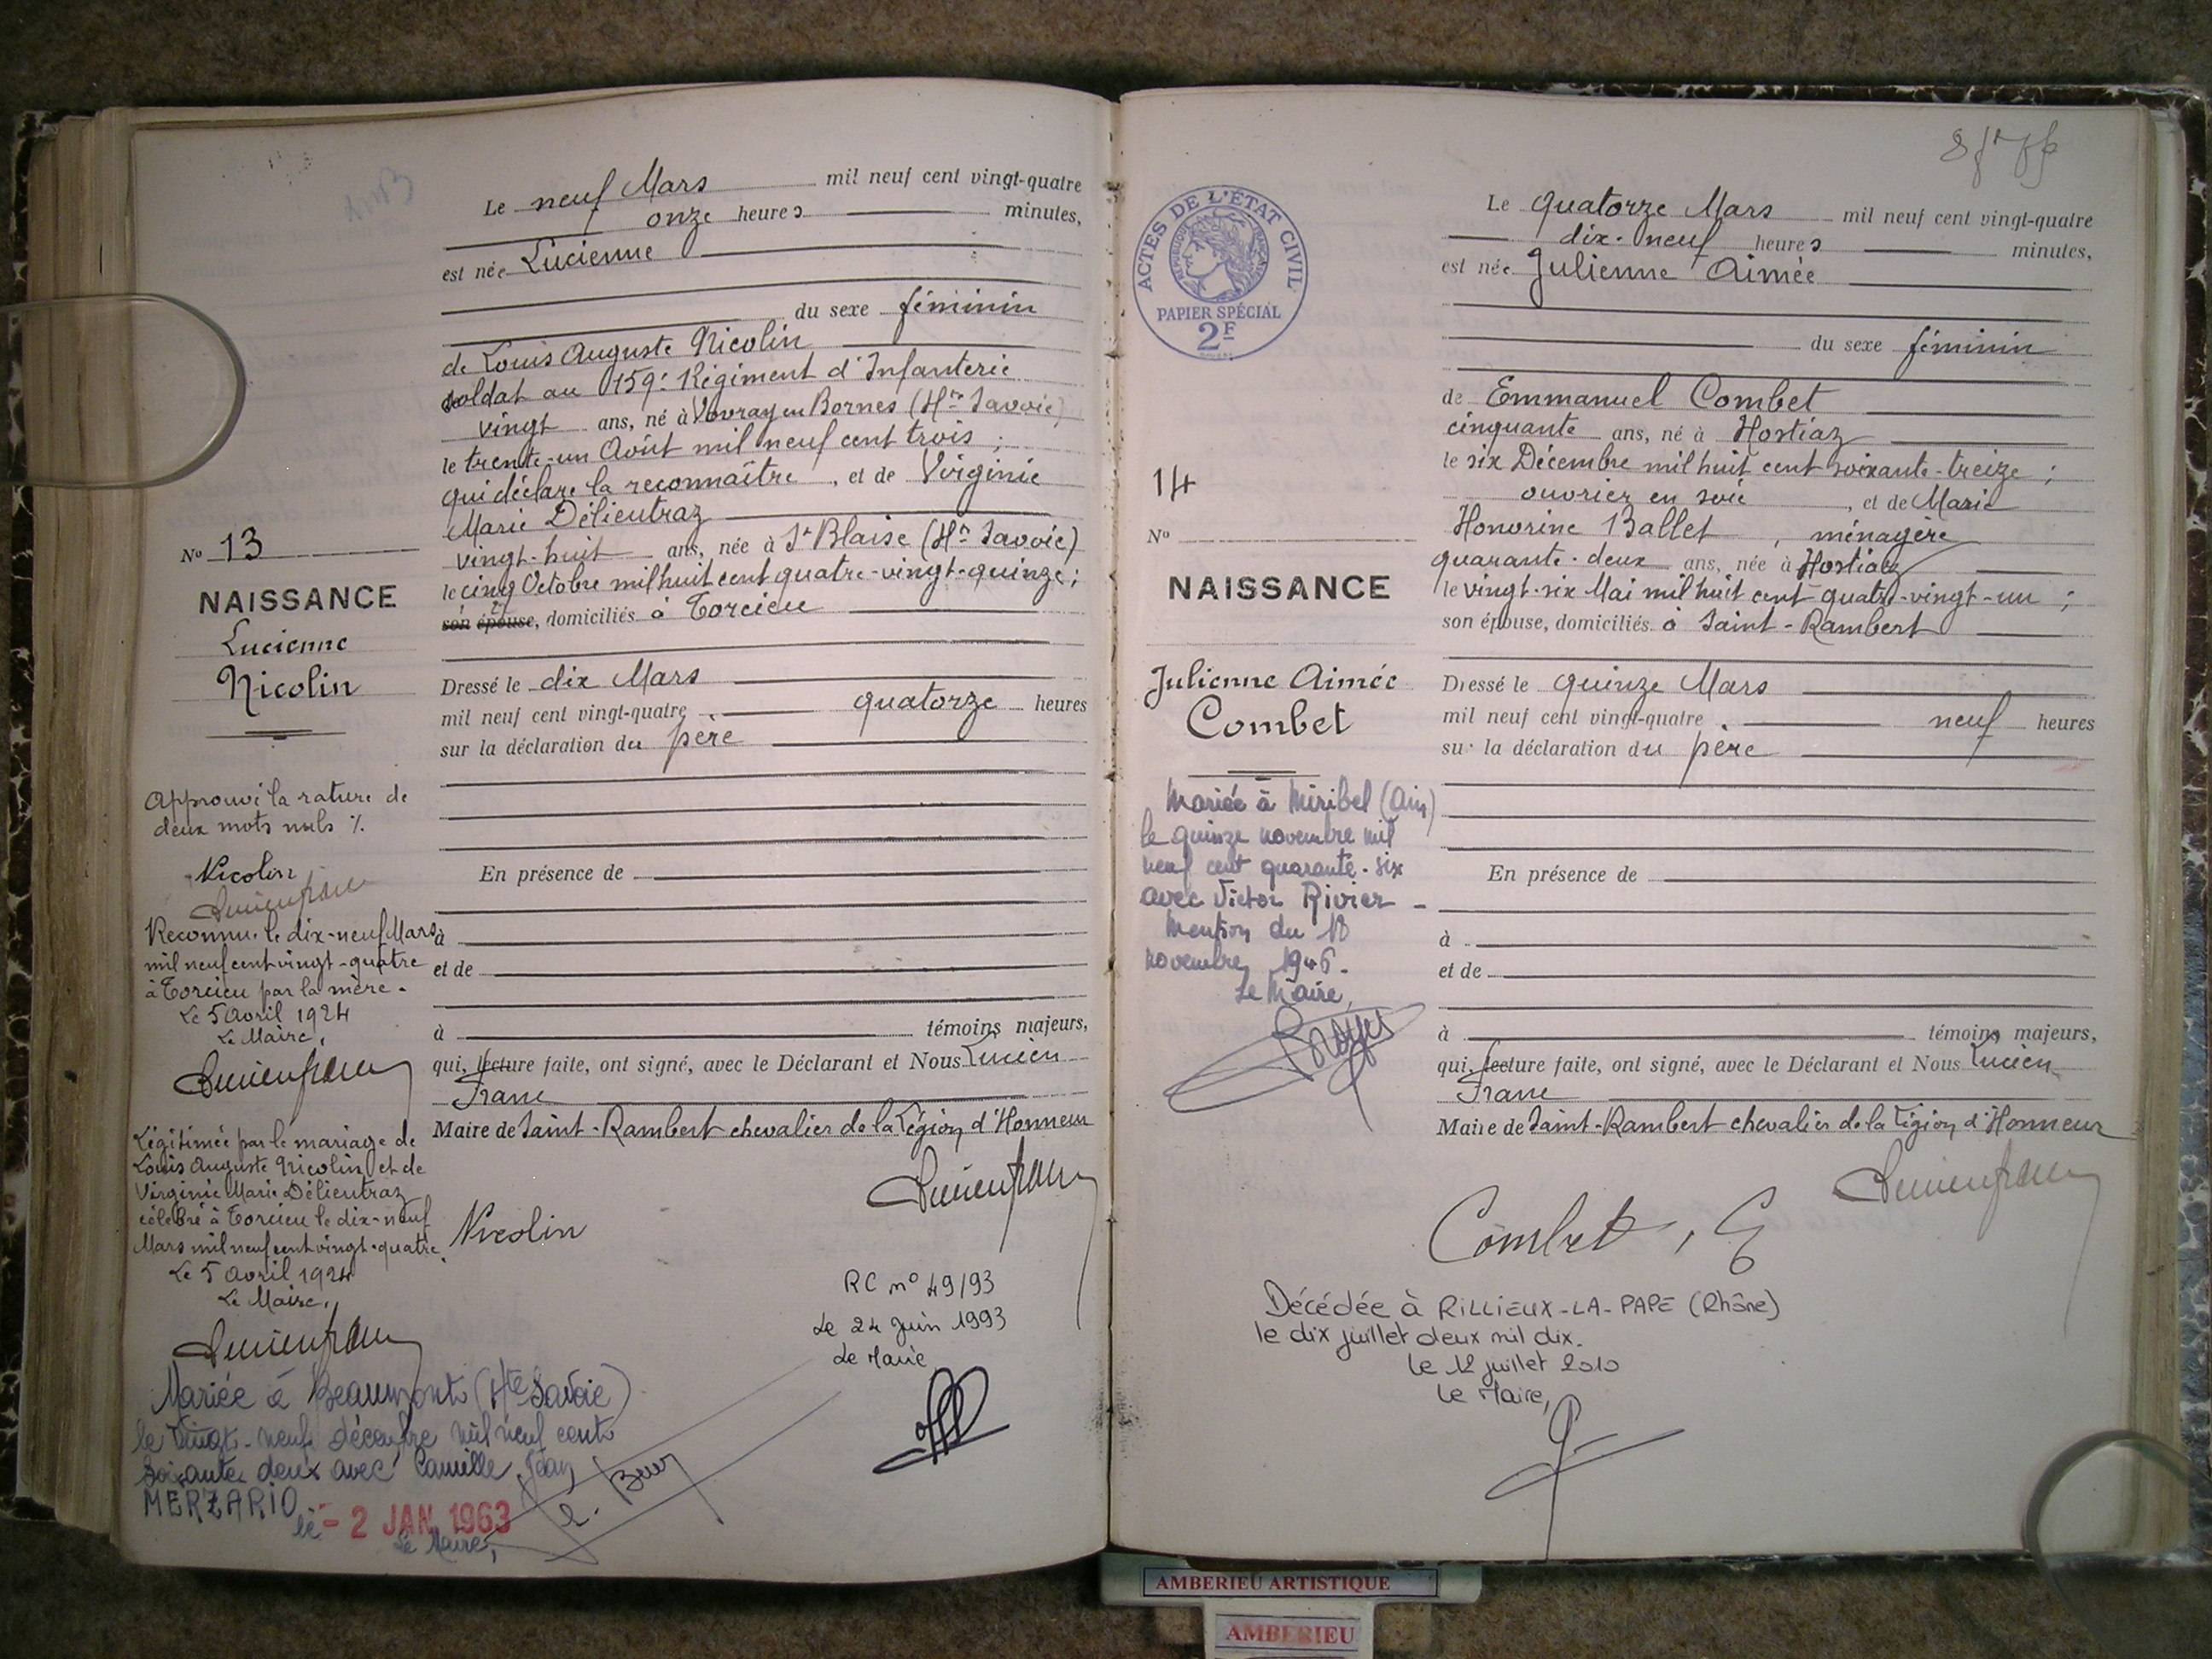 Le neuf Mars mil neuf cent vingt-quatre
onze heures minutes,
est née Lucienne
du sexe féminin
de Louis Auguste Nicolin
soldat au 159e Régiment d'Infanterie
vingt ans, né à Vovray en Bornes (Hte Savoie)
le trente-un Août mil neuf cent trois ;
qui déclare la reconnaître, et de Virginie
Marie Délieutraz
vingt-huit ans, née à St Blaise (Hte Savoie)
le cinq Octobre mil huit cent quatre-vingt-quinze ;
son épouse, domiciliés à Torcieu
Dressé le dix Mars
mil neuf cent vingt-quatre, quatorze heures
sur la déclaration du père
En présence de
à
et de
à témoins majeurs,
qui, lecture faite, ont signé, avec le Déclarant et Nous Lucien
Franc
Maire de Saint-Rambert chevalier de la Légion d'Honneur
Nicolin
RC n° 49/93
Le 24 juin 1993
Le Maire
No 13
NAISSANCE
Lucienne
Nicolin
Approuvé la rature de
deux mots nuls %.
Nicolin
Lucien Franc
Reconnue le dix-neuf Mars
mil neuf cent vingt-quatre
à Torcieu par la mère.
Le 5 Avril 1924
Le Maire,
Lucien Franc
Légitimée par le mariage de
Louis Auguste Nicolin et de
Virginie Marie Délieutraz
célébré à Torcieu le dix-neuf
Mars mil neuf cent vingt-quatre.
Le 5 Avril 1924
Le Maire,
Lucien Franc
Mariée à Beaumont (Hte Savoie)
le vingt-neuf décembre mil neuf cent
soixante deux avec Camille Jean
MERZARIO
le - 2 JAN 1963
Le Maire,
ACTES DE L'ÉTAT CIVIL
RÉPUBLIQUE FRANÇAISE
PAPIER SPÉCIAL
2F
Le quatorze Mars mil neuf cent vingt-quatre
dix-neuf heures minutes,
est née Julienne Aimée
du sexe féminin
de Emmanuel Combet
cinquante ans, né à Hostiaz
le six Décembre mil huit cent soixante-treize ;
ouvrier en soie, et de Marie
Honorine Ballet, ménagère
quarante-deux ans, née à Hostiaz
le vingt-six Mai mil huit cent quatre-vingt-un ;
son épouse, domiciliés à Saint-Rambert
Dressé le quinze Mars
mil neuf cent vingt-quatre, neuf heures
sur la déclaration du père
En présence de
à
et de
à témoins majeurs,
qui, lecture faite, ont signé, avec le Déclarant et Nous Lucien
Franc
Maire de Saint-Rambert chevalier de la Légion d'Honneur
Lucien Franc
Combet, E
Décédée à RILLIEUX-LA-PAPE (Rhône)
le dix juillet deux mil dix.
Le 12 juillet 2010
Le Maire,
14
No
NAISSANCE
Julienne Aimée
Combet
Mariée à Miribel (Ain)
le quinze novembre mil
neuf cent quarante-six
avec Victor Rivier -
Mention du 18
novembre 1946.
Le Maire,
AMBERIEU ARTISTIQUE
AMBERIEU